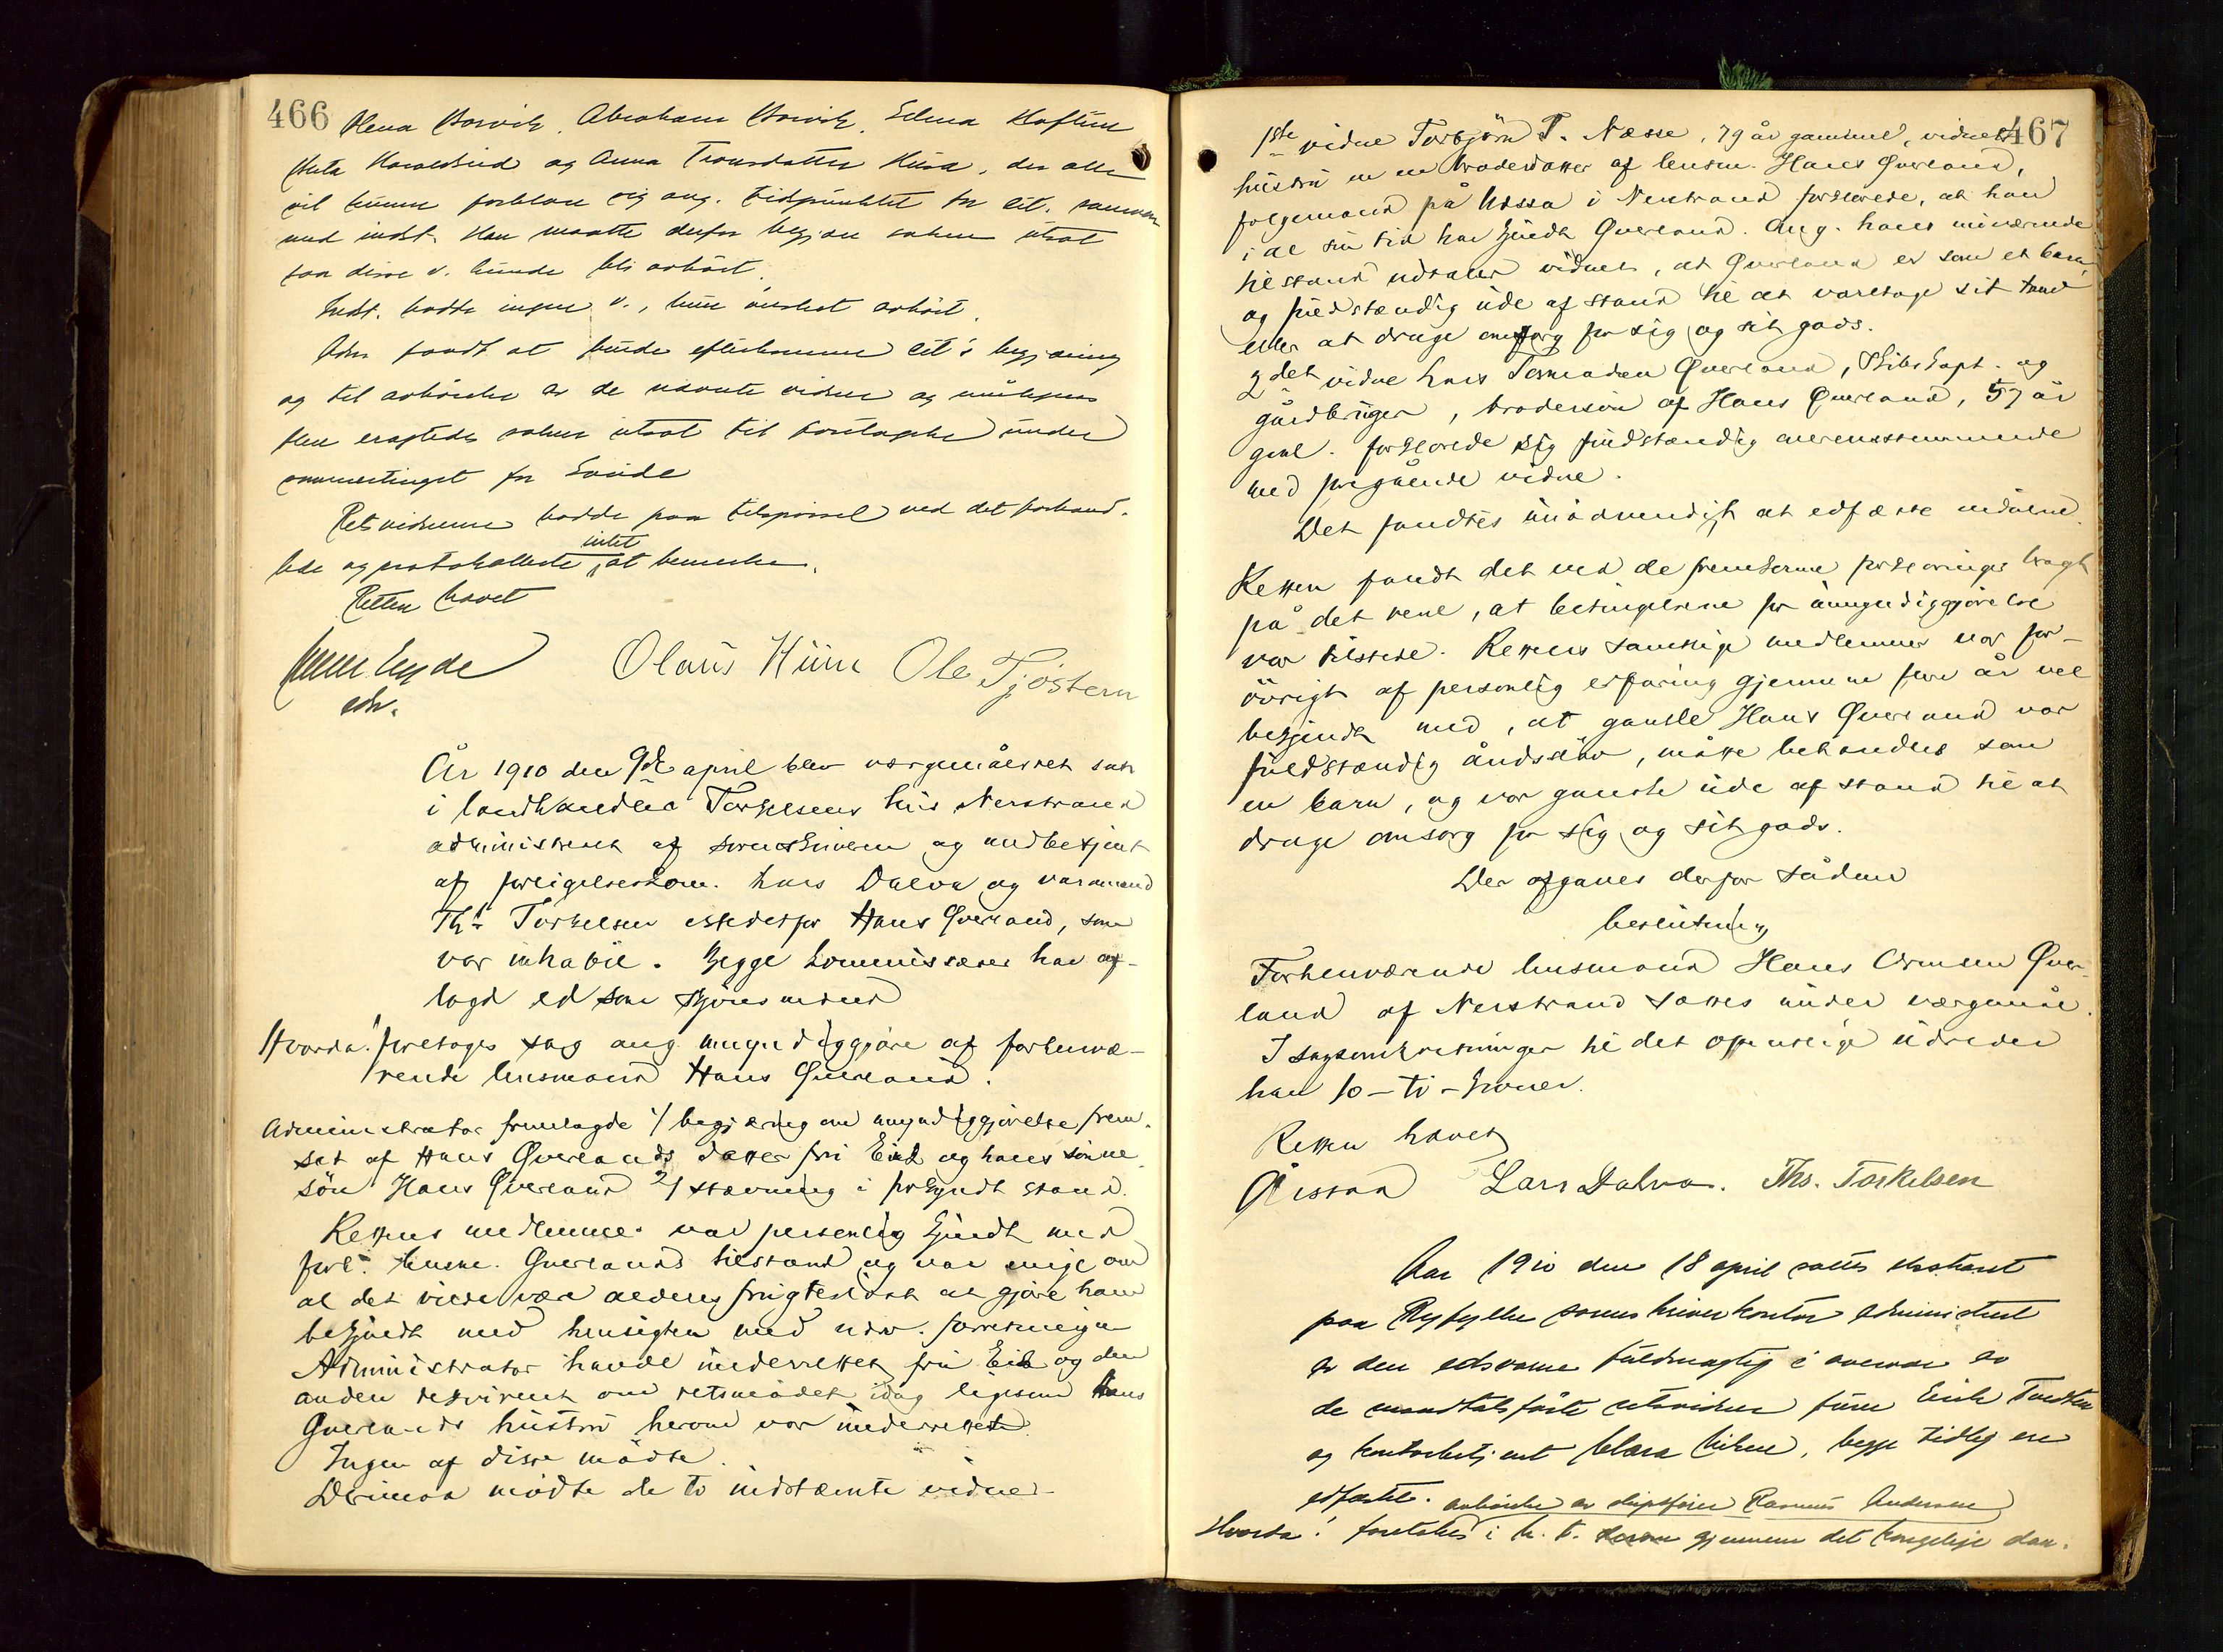 466
Olena Borvik, Abraham Borvik, Selma Haftun
Berta Haraldseid og Anna Tronsdatter Husa, der alle
vil kunne forklare sig ang. tidspunktet for cit. samvær
med indst. Han maatte derfor begjære saken utsat
saa disse v. kunde bli avhørt.
Indst. hadde ingen v., hun ønsket avhørt.
Adm. fandt at burde efterkomme cit's begjæring
og til avhørelse av de nævnte vidner og muligens
flere eragtedes saken utsat til foretagelse under
sommertinget for Saude
Retsvidnerne hadde paa tilspørsel ved det forhand-
lede og protokollerte intet at bemerke.
Retten hævet
edsv.
Olaus Hüm Ole Tjøstem
År 1910 den 9de april blev værgemålsret sat
i landhandler Torkelsens hus Nerstrand
administreret af sorenskriveren og medbetjent
af forligelseskom. Lars Dalva og varamand
Ths. Torkelsen istedetfor Hans Qverland, som
var inhabil. Begge kommissærer har af-
lagd ed som skjønsmænd
Hvorda! foretoges sag ang umyndiggjøre af forhenvæ-
rende lensmand Hans Qverland.
Administrator fremlagde 1/ begjæring om umyndiggjørelse frem-
sat af Hans Qverlands datter fru Eik og hans sønne
søn Hans Qverland 2/ stævning i forkyndt stand.
Rettens medlemmer var personlig kjendt med
forh. lensm. Qverlands tilstand og var enige om
at det vilde være aldeles frugtesløst at gjøre ham
bekjendt med hensigten med udv. forretningen
Administrator havde underrettet fru Eik og den
anden rekvirent om retsmødet idag ligesom Hans
Qverlands hustru herom var underrettet.
Ingen af disse mødte.
Derimod mødte de to indstævnte vidner

467
1ste vidne Torbjørn T. Næsse, 79 år gammel, vidnets
hustru er en broderdatter af lensm. Hans Qverland,
følgemand på Næssa i Nerstrand forklarede, at han
i al sin tid har kjendt Qverland. Ang. hans nuværende
tilstand udtaler vidnet, at Qverland er som et barn
og fuldstændig ude af stand til at varetage sit tarv
eller at drage omsorg for sig og sit gods.
2det vidne Lars Tormodsen Qverland, Skibskapt. og
gårdbruger, brodersøn af Hans Qverland, 57 år
gml. forklarede sig fuldstændig overensstemmende
med foregående vidne.
Det fandtes unødvendigt at edfæste vidnerne.
Retten fandt det ved de fremkomne forklaringer bragt
på det rene, at betingelserne for umyndiggjørelse
var tilstede. Rettens samtlige medlemmer var for-
øvrigt af personlig erfaring gjennem flere år vel
bekjendt med, at gamle Hans Qverland var
fuldstændig åndssløv, måtte behandles som
en barn, og var ganske ude af stand til at
drage omsorg for sig og sit gods.
Der afgaves derfor sådan
beslutning
Forhenværende lensmand Hans Ormsen Qver-
land af Nerstrand sættes under værgemål.
I sagsomkostninger til det offentlige udreder
han 10 – ti – kroner.
Retten hævet
Lars Dalva. Ths. Torkelsen
Aar 1910 den 18 april sattes ekstraret
paa Ryfylke sorenskriverkontor administreret
av den edsvorne fuldmægtig i overvær av
de mandtalsførte retsvidner frøken
og kontorbetjent Clara, begge tidligere
edfæstet. avhørelse av skipsfører Rasmus Andersen
Hvorda! foretokes i h. t. gjennem det kongelige dan-